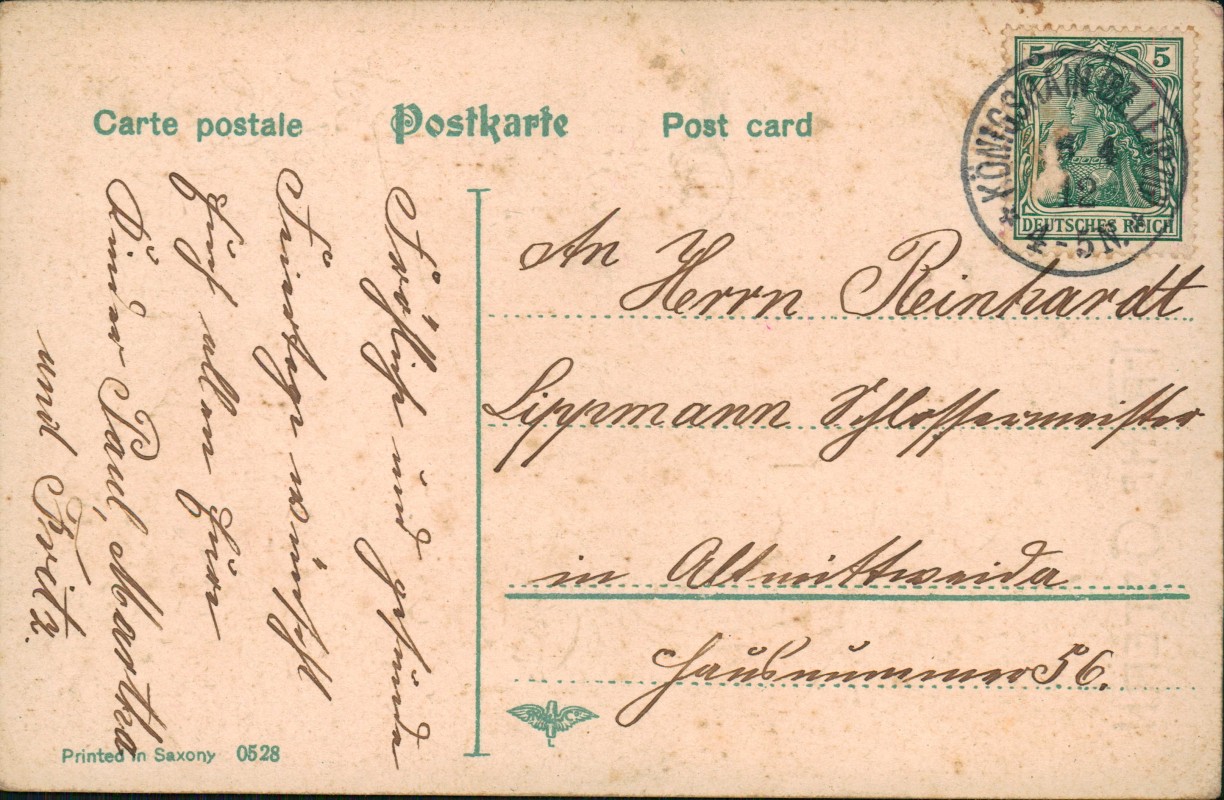 Carte postale Postkarte Post card
5 5
DEUTSCHES REICH
KÖNIGSHAIN
12
4-5N.
An
Herrn Reinhardt
Lippmann Schlossermeister
in Altmittweida
Hausnummer 56.
Fröhliche und gesunde
Feiertage wünscht
Euch allen Eure
Minna Paul, Martha
und Fritz.
Printed in Saxony 0528